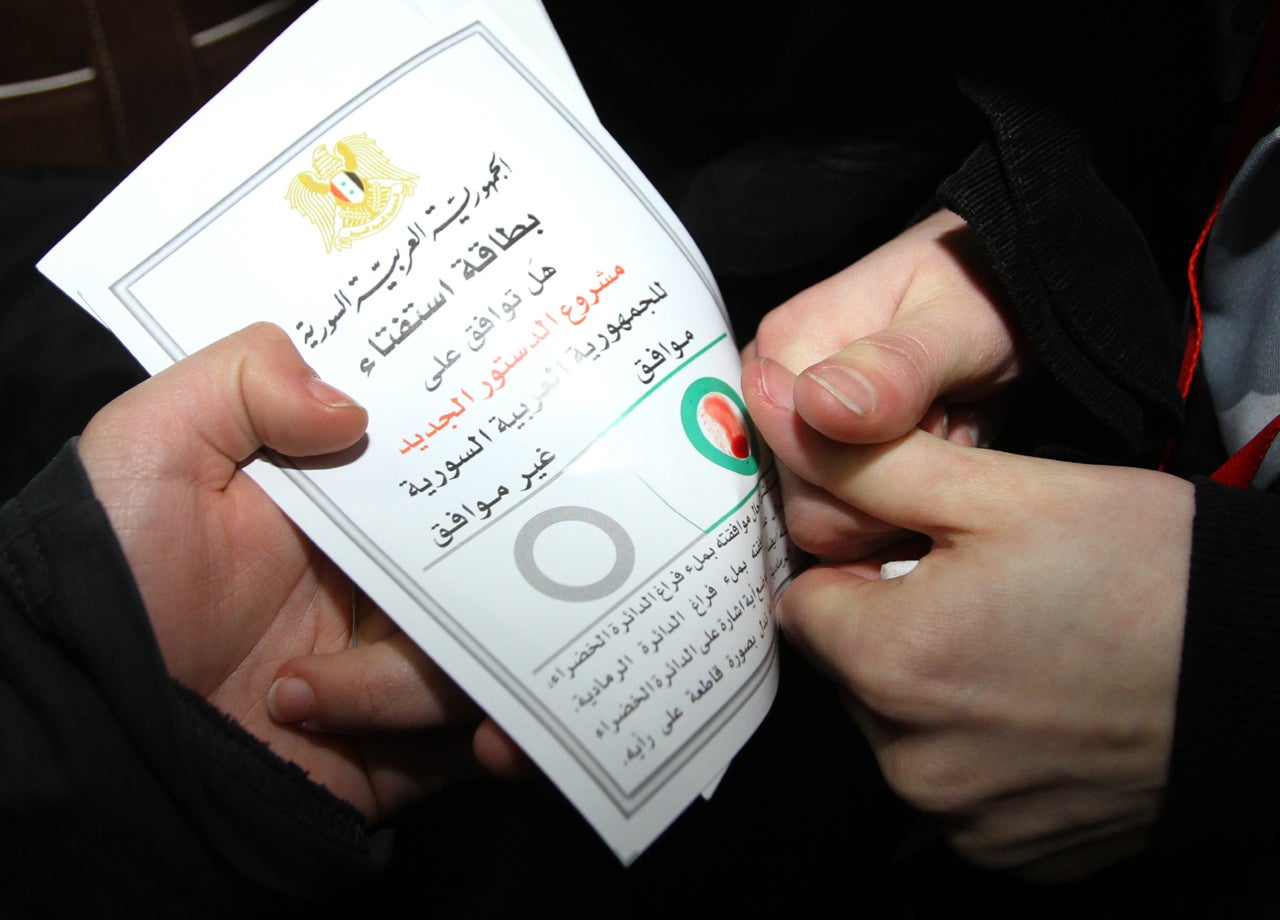 الجمهورية العربية السورية
بطاقة استفتاء
هل توافق على
مشروع الدستور الجديد
للجمهورية العربية السورية
موافق
غير موافق
حال موافقته بملء فراغ الدائرة الخضراء،
بملء فراغ الدائرة الرمادية.
أية اشارة على الدائرة الخضراء
تدل بصورة قاطعة على رأيه.